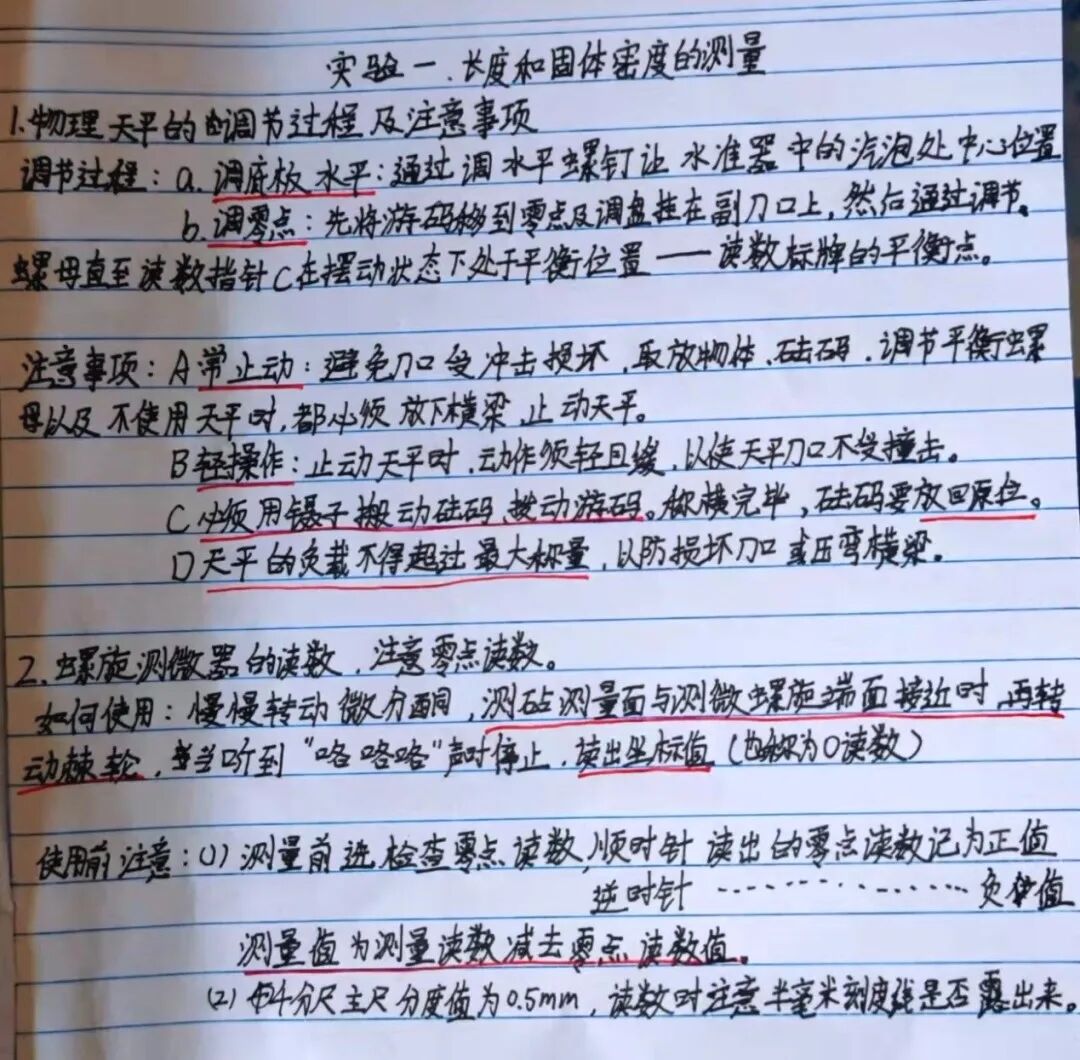 实验一、长度和固体密度的测量
1.物理天平的调节过程及注意事项
调节过程：a.调底板水平：通过调水平螺钉让水准器中的汽泡处中心位置
b.调零点：先将游码移到零点及调盘挂在副刀口上，然后通过调节。
螺母直至读数指针C在摆动状态下处于平衡位置——读数标牌的平衡点。
注意事项：A常止动：避免刀口受冲击损坏，取放物体、砝码、调节平衡螺
母以及不使用天平时，都必须放下横梁，止动天平。
B轻操作：止动天平时，动作须轻且缓，以使天平刀口不受撞击。
C必须用镊子搬动砝码、拨动游码。称横完毕，砝码要放回原位。
D天平的负载不得超过最大称量，以防损坏刀口或压弯横梁。
2.螺旋测微器的读数，注意零点读数。
如何使用：慢慢转动微分筒，测砧测量面与测微螺旋端面接近时，再转
动棘轮，当听到“咯咯咯”声时停止，读出坐标值（也称为0读数）
使用前注意：(1)测量前进检查零点读数，顺时针读出的零点读数记为正值
逆时针…………负值
测量值为测量读数减去零点读数值。
(2)千分尺主尺分度值为0.5mm，读数时注意半毫米刻度线是否露出来。